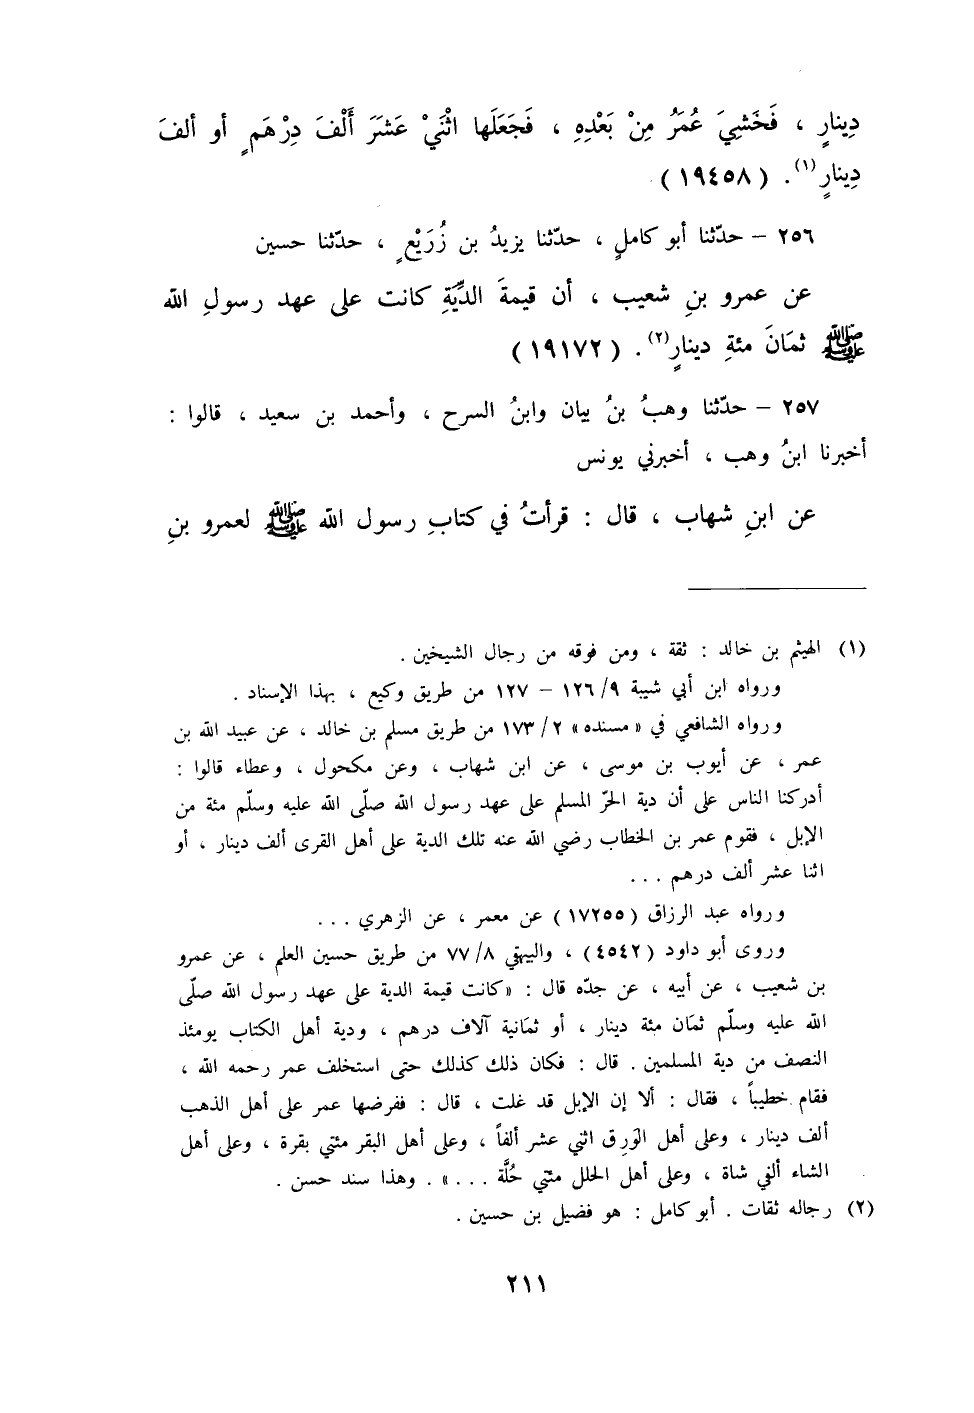 دِينارٍ ، فَخَشِيَ عُمَرُ مِنْ بَعْدِهِ ، فَجَعَلَها اثْنَيْ عَشَرَ أَلْفَ دِرْهَمٍ أو ألفَ
دِينارٍ(١). (١٩٤٥٨)
٢٥٦ – حدّثنا أبو كاملٍ ، حدّثنا يزيدُ بن زُرَيْعٍ ، حدّثنا حسين
عن عمرو بنِ شعيب ، أن قيمةَ الدِّيَةِ كانت على عهد رسولِ الله
ﷺ ثمَانَ مئةِ دينارٍ(٢). (١٩١٧٢)
٢٥٧ – حدّثنا وهبُ بنُ بيان وابنُ السرح ، وأحمد بن سعيد ، قالوا :
أخبرنا ابنُ وهب ، أخبرني يونس
عن ابنِ شهاب ، قال : قرأتُ في كتابِ رسول الله ﷺ لعمرو بنِ
(١) الهيثم بن خالد : ثقة ، ومن فوقه من رجال الشيخين .
ورواه ابن أبي شيبة ١٢٦/٩ – ١٢٧ من طريق وكيع ، بهذا الإسناد .
ورواه الشافعي في « مسنده » ١٧٣/٢ من طريق مسلم بن خالد ، عن عبيد الله بن
عمر ، عن أيوب بن موسى ، عن ابن شهاب ، وعن مكحول ، وعطاء قالوا :
أدركنا الناس على أن دية الحرّ المسلم على عهد رسول الله صلّى الله عليه وسلّم مئة من
الإبل ، فقوم عمر بن الخطاب رضي الله عنه تلك الدية على أهل القرى ألف دينار ، أو
اثنا عشر ألف درهم ...
ورواه عبد الرزاق (١٧٢٥٥) عن معمر ، عن الزهري ...
وروى أبو داود (٤٥٤٢) ، والبيهقي ٧٧/٨ من طريق حسين العلم ، عن عمرو
بن شعيب ، عن أبيه ، عن جدّه قال : «كانت قيمة الدية على عهد رسول الله صلّى
الله عليه وسلّم ثمَان مئة دينار ، أو ثمَانية آلاف درهم ، ودية أهل الكتاب يومئذ
النصف من دية المسلمين . قال : فكان ذلك كذلك حتى استخلف عمر رحمه الله ،
فقام خطيباً ، فقال : ألا إن الإبل قد غلت ، قال : ففرضها عمر على أهل الذهب
ألف دينار ، وعلى أهل الوَرِق اثني عشر ألفاً ، وعلى أهل البقر مئتي بقرة ، وعلى أهل
الشاء ألفي شاة ، وعلى أهل الحلل مئتي حُلَّة ...» . وهذا سند حسن .
(٢) رجاله ثقات . أبو كامل : هو فضيل بن حسين .
٢١١